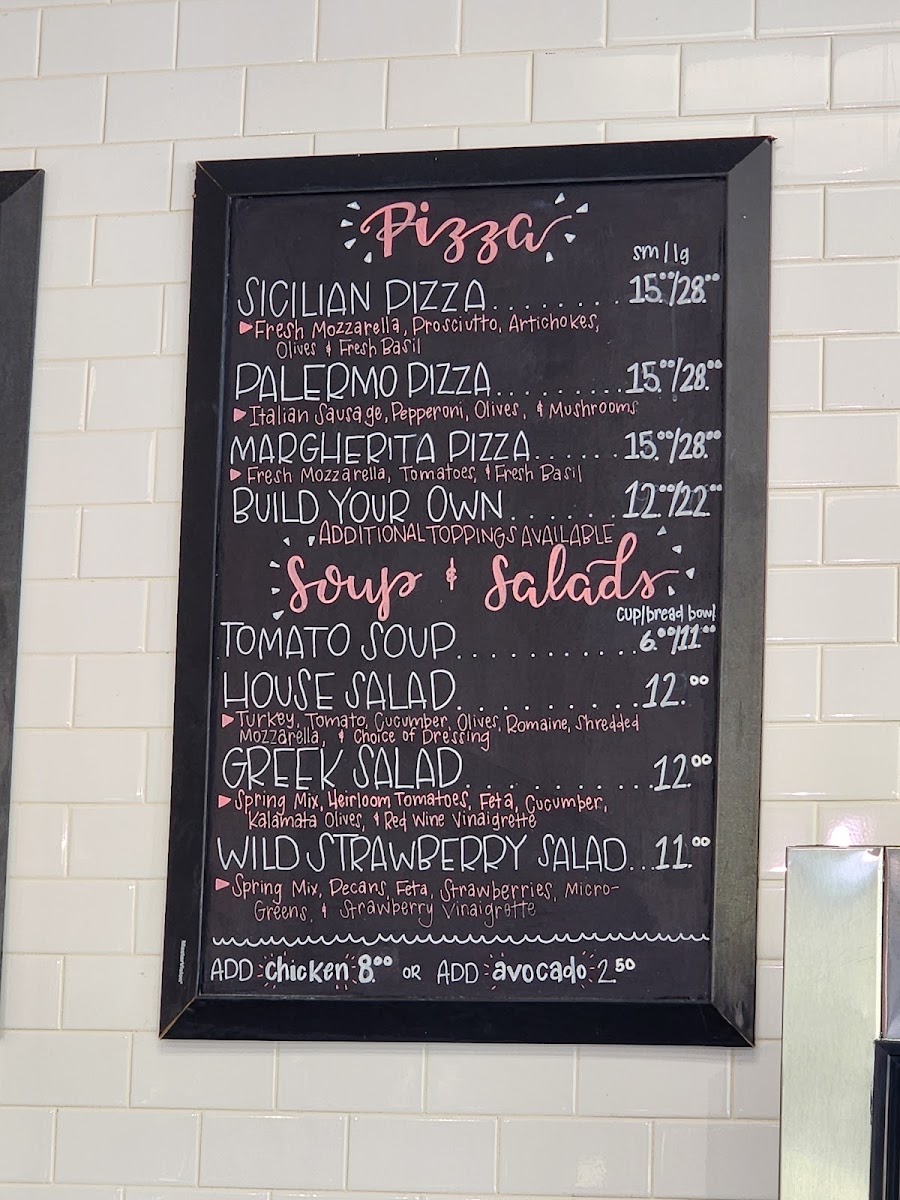 Pizza
sm/lg
SICILIAN PIZZA........15.00/28.00
Fresh Mozzarella, Prosciutto, Artichokes,
Olives & Fresh Basil
PALERMO PIZZA.........15.00/28.00
Italian Sausage, Pepperoni, Olives, & Mushrooms
MARGHERITA PIZZA......15.00/28.00
Fresh Mozzarella, Tomatoes, & Fresh Basil
BUILD YOUR OWN.......12.00/22.00
ADDITIONAL TOPPINGS AVAILABLE
Soup & Salads
cup/bread bowl
TOMATO SOUP...........6.00/11.00
HOUSE SALAD..........12.00
Turkey, Tomato, Cucumber, Olives, Romaine, Shredded
Mozzarella, & Choice of Dressing
GREEK SALAD..........12.00
Spring Mix, Heirloom Tomatoes, Feta, Cucumber,
Kalamata Olives, & Red Wine Vinaigrette
WILD STRAWBERRY SALAD...11.00
Spring Mix, Pecans, Feta, Strawberries, Micro-
Greens, & Strawberry Vinaigrette
ADD chicken 8.00 OR ADD avocado 2.50